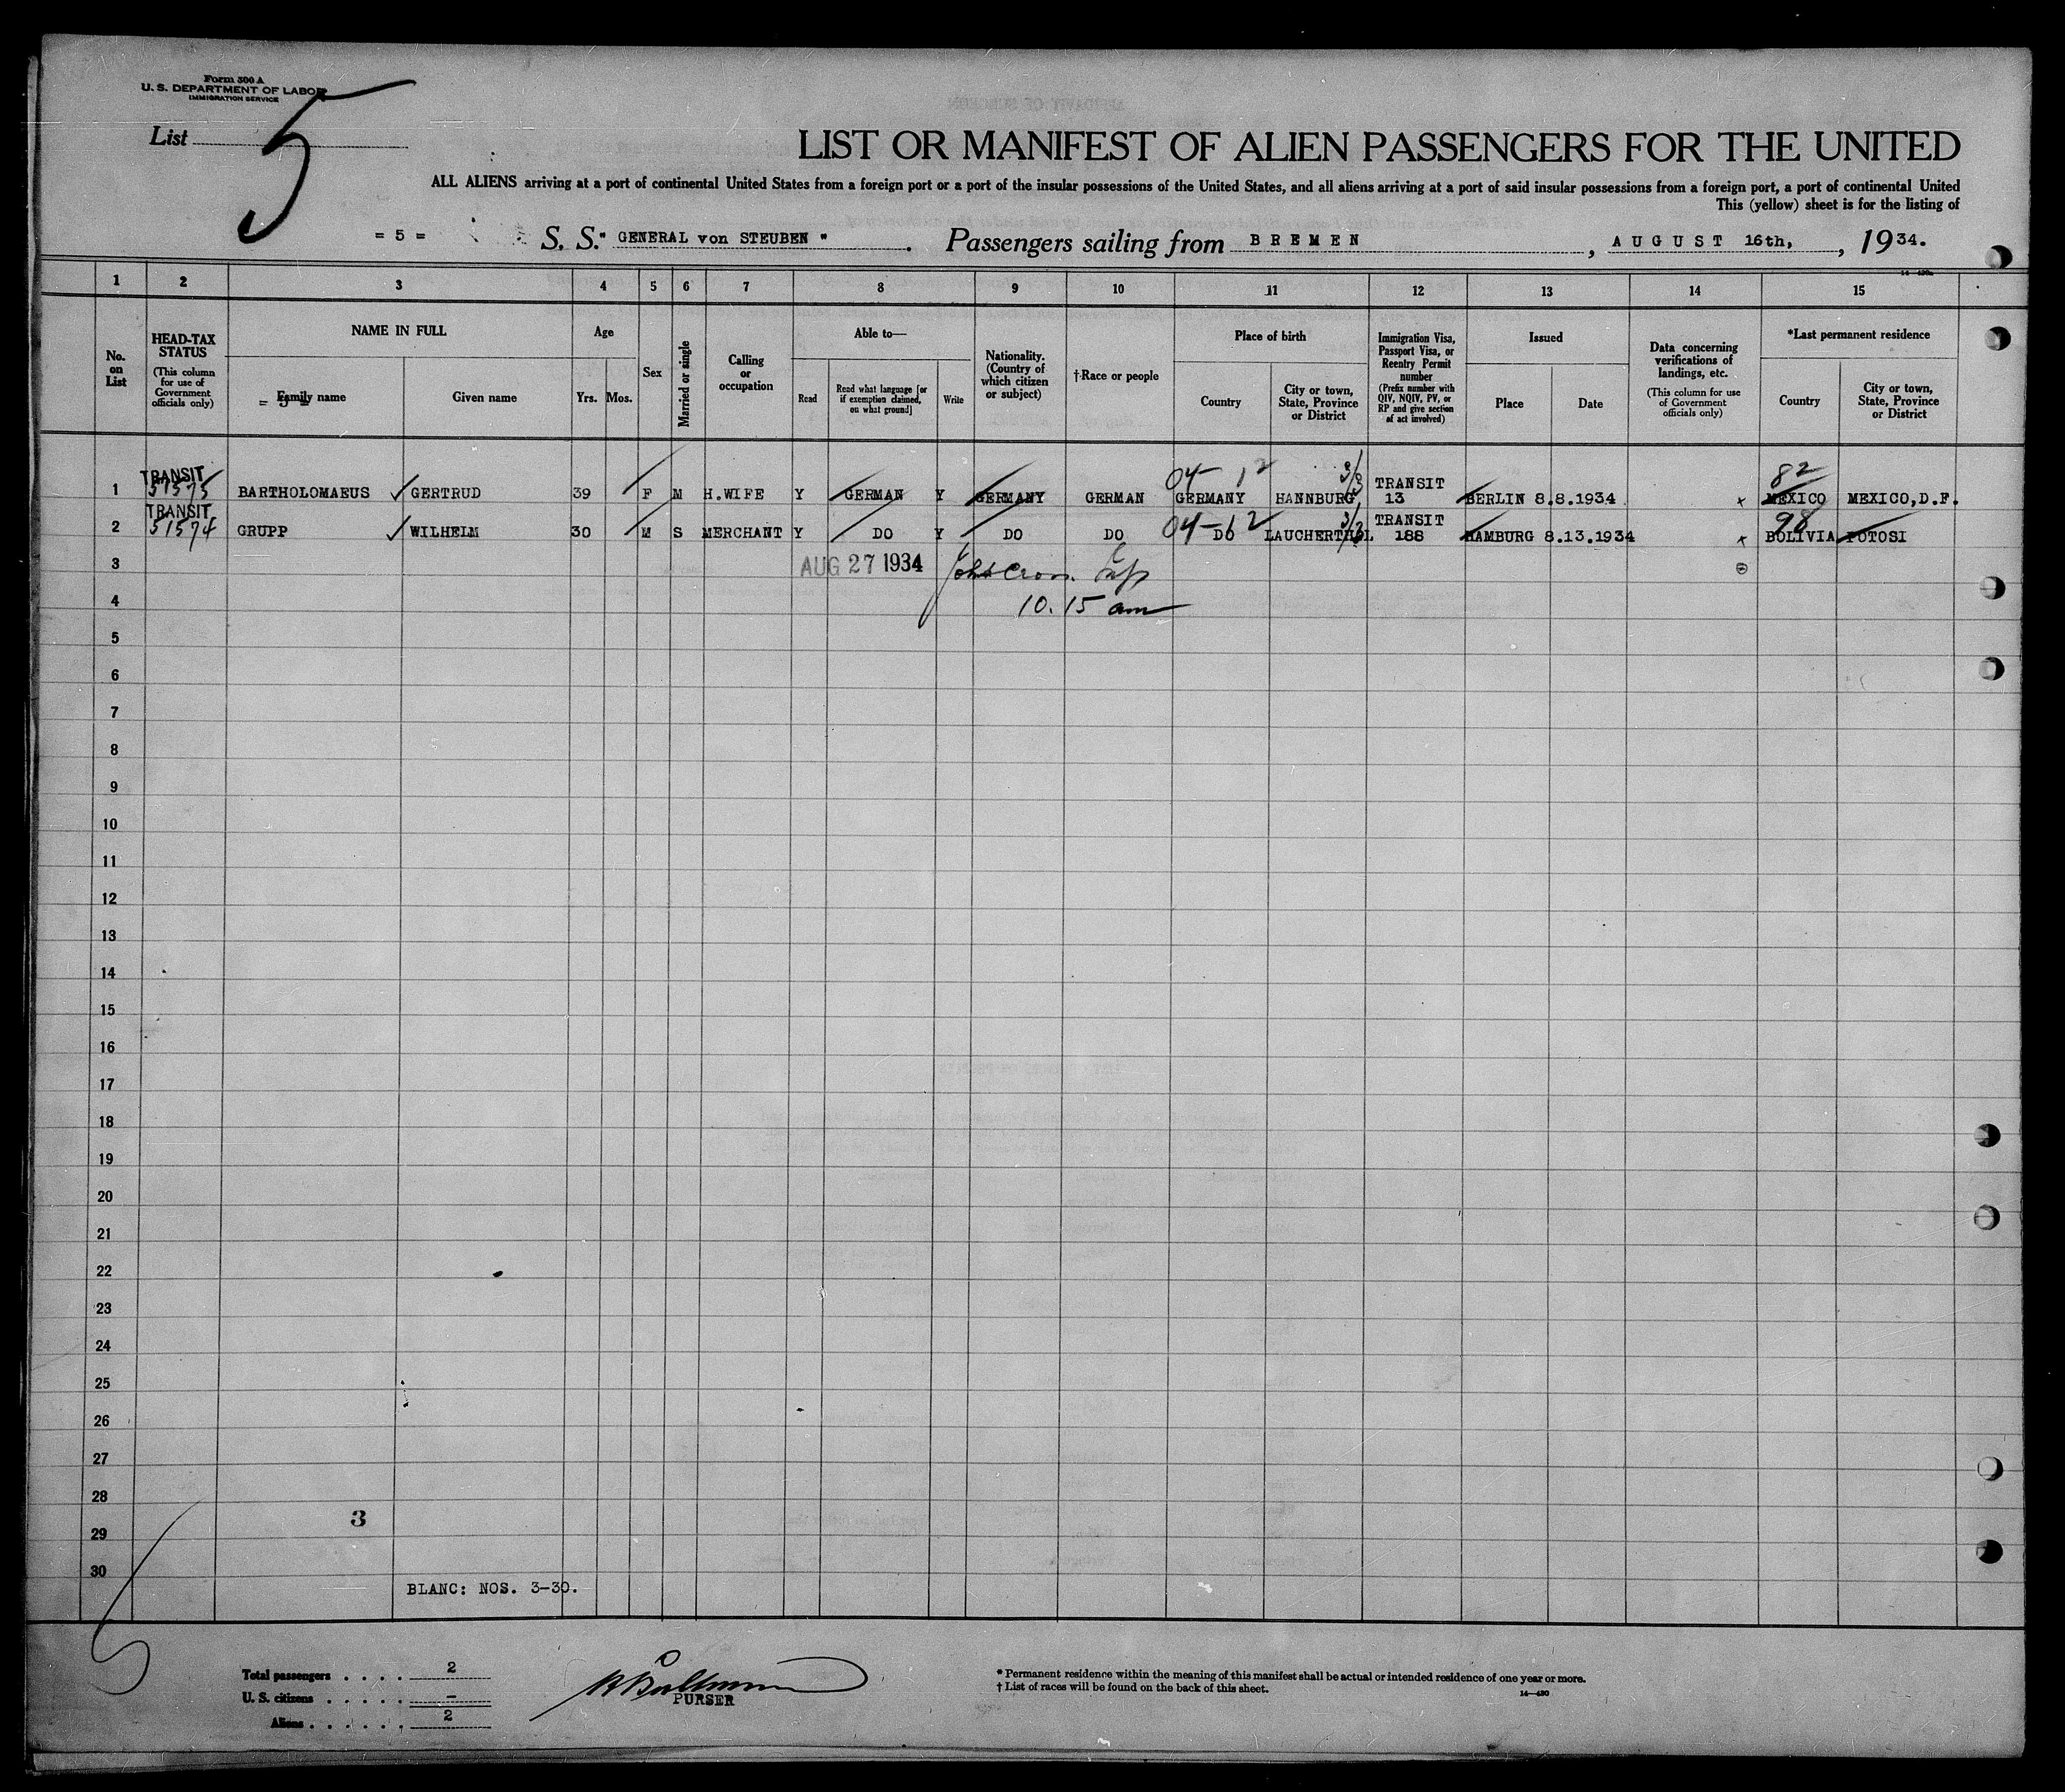 Form 500 A
U. S. DEPARTMENT OF LABOR
IMMIGRATION SERVICE
List 5
LIST OR MANIFEST OF ALIEN PASSENGERS FOR THE UNITED
ALL ALIENS arriving at a port of continental United States from a foreign port or a port of the insular possessions of the United States, and all aliens arriving at a port of said insular possessions from a foreign port, a port of continental United
This (yellow) sheet is for the listing of
= 5 = S. S. " GENERAL von STEUBEN " . Passengers sailing from BREMEN , AUGUST 16th, , 1934.
14—430a
1 2 3 4 5 6 7 8 9 10 11 12 13 14 15
No. on List
HEAD-TAX STATUS (This column for use of Government officials only)
NAME IN FULL
= 5 = Family name
Given name
Age
Yrs. Mos.
Sex
Married or single
Calling or occupation
Able to—
Read
Read what language [or if exemption claimed, on what ground]
Write
Nationality. (Country of which citizen or subject)
†Race or people
Place of birth
Country
City or town, State, Province or District
Immigration Visa, Passport Visa, or Reentry Permit number (Prefix number with QIV, NQIV, PV, or RP and give section of act involved)
Issued
Place
Date
Data concerning verifications of landings, etc. (This column for use of Government officials only)
*Last permanent residence
Country
City or town, State, Province or District
TRANSIT 04- 12 3/3 TRANSIT 82
1 51575 BARTHOLOMAEUS ✓ GERTRUD 39 F M H.WIFE Y GERMAN Y GERMANY GERMAN GERMANY HANNBURG 13 BERLIN 8.8.1934 x MEXICO MEXICO,D.F.
TRANSIT 04-12 3/3 TRANSIT 98
2 51574 GRUPP ✓ WILHELM 30 M S MERCHANT Y DO Y DO DO DO LAUCHERTHAL 188 HAMBURG 8.13.1934 x BOLIVIA POTOSI
3 AUG 27 1934
4 10.15 am
5
6
7
8
9
10
11
12
13
14
15
16
17
18
19
20
21
22
23
24
25
26
27
28
3
29
30
BLANC: NOS. 3-30.
Total passengers . . . . 2
U. S. citizens . . . . . –
Aliens . . . . . . 2
PURSER
* Permanent residence within the meaning of this manifest shall be actual or intended residence of one year or more.
† List of races will be found on the back of this sheet.
14—430